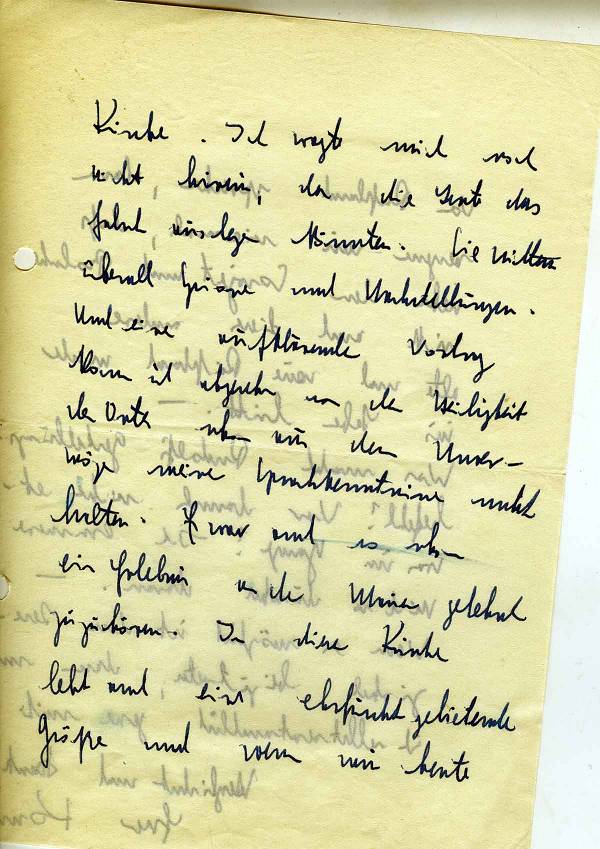 Kirche. Ich wagte mich noch
nicht hinein, da die Leute das
falsch auslegen könnten. Sie wittern
überall Spione und Unterstellungen.
Und eine aufklärende Vortrag
kann ich abgesehen von der Heiligkeit
des Ortes schon aus dem Unver-
möge meine Sprachkenntnisse nicht
halten. Es war und es schon
ein Erlebnis an der Mauer gelehnt
zuzuhören. In diese Kirche
lebt und eine ehrfurchtgebietende
Größe und wenn wir heute